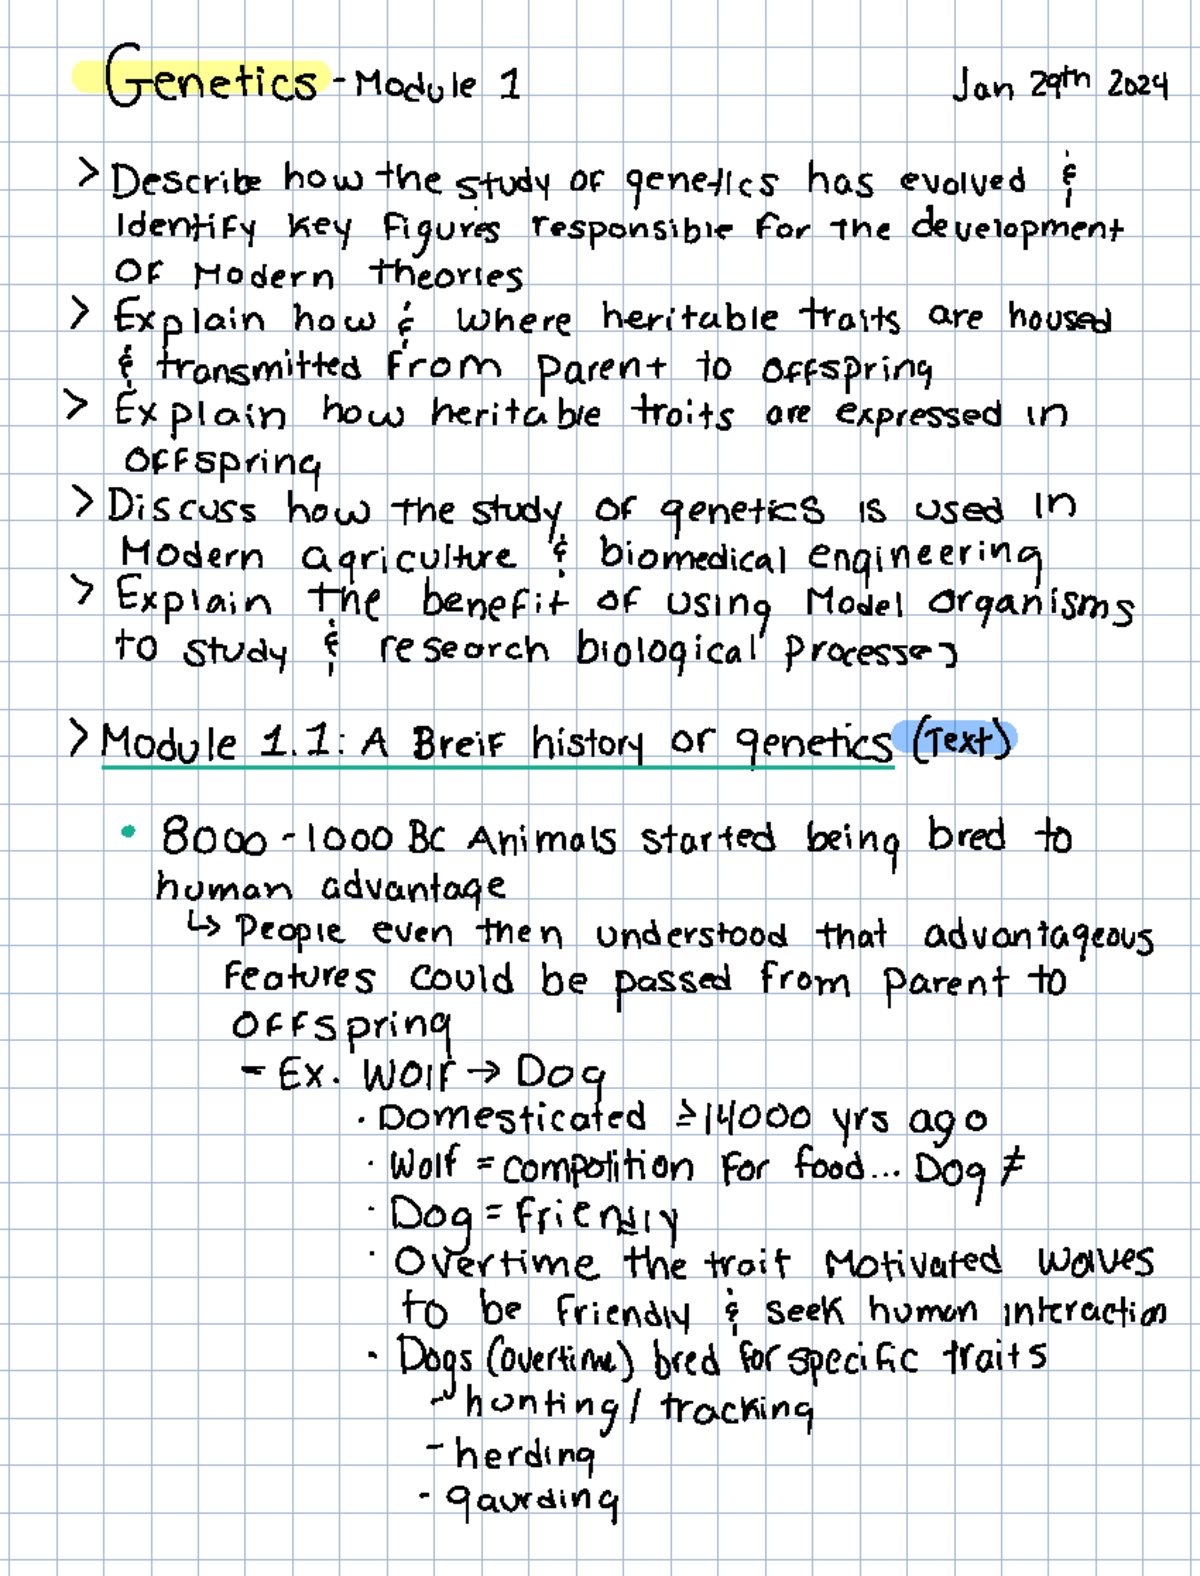 Genetics - Module 1
Jan 29th 2024
> Describe how the study of genetics has evolved &
Identify key figures responsible for the development
of modern theories
> Explain how & where heritable traits are housed
& transmitted from parent to offspring
> Explain how heritable traits are expressed in
offspring
> Discuss how the study of genetics is used in
modern agriculture & biomedical engineering
> Explain the benefit of using model organisms
to study & research biological processes
> Module 1.1: A Breif history of genetics (Text)
• 8000 - 1000 BC Animals started being bred to
human advantage
↳ People even then understood that advantageous
features could be passed from parent to
offspring
- Ex. Wolf → Dog
· Domesticated ≥14000 yrs ago
· Wolf = compotition for food... Dog ≠
· Dog = friendly
· Overtime the trait motivated wolves
to be friendly & seek human interaction
· Dogs (overtime) bred for specific traits
- hunting / tracking
- herding
- gaurding